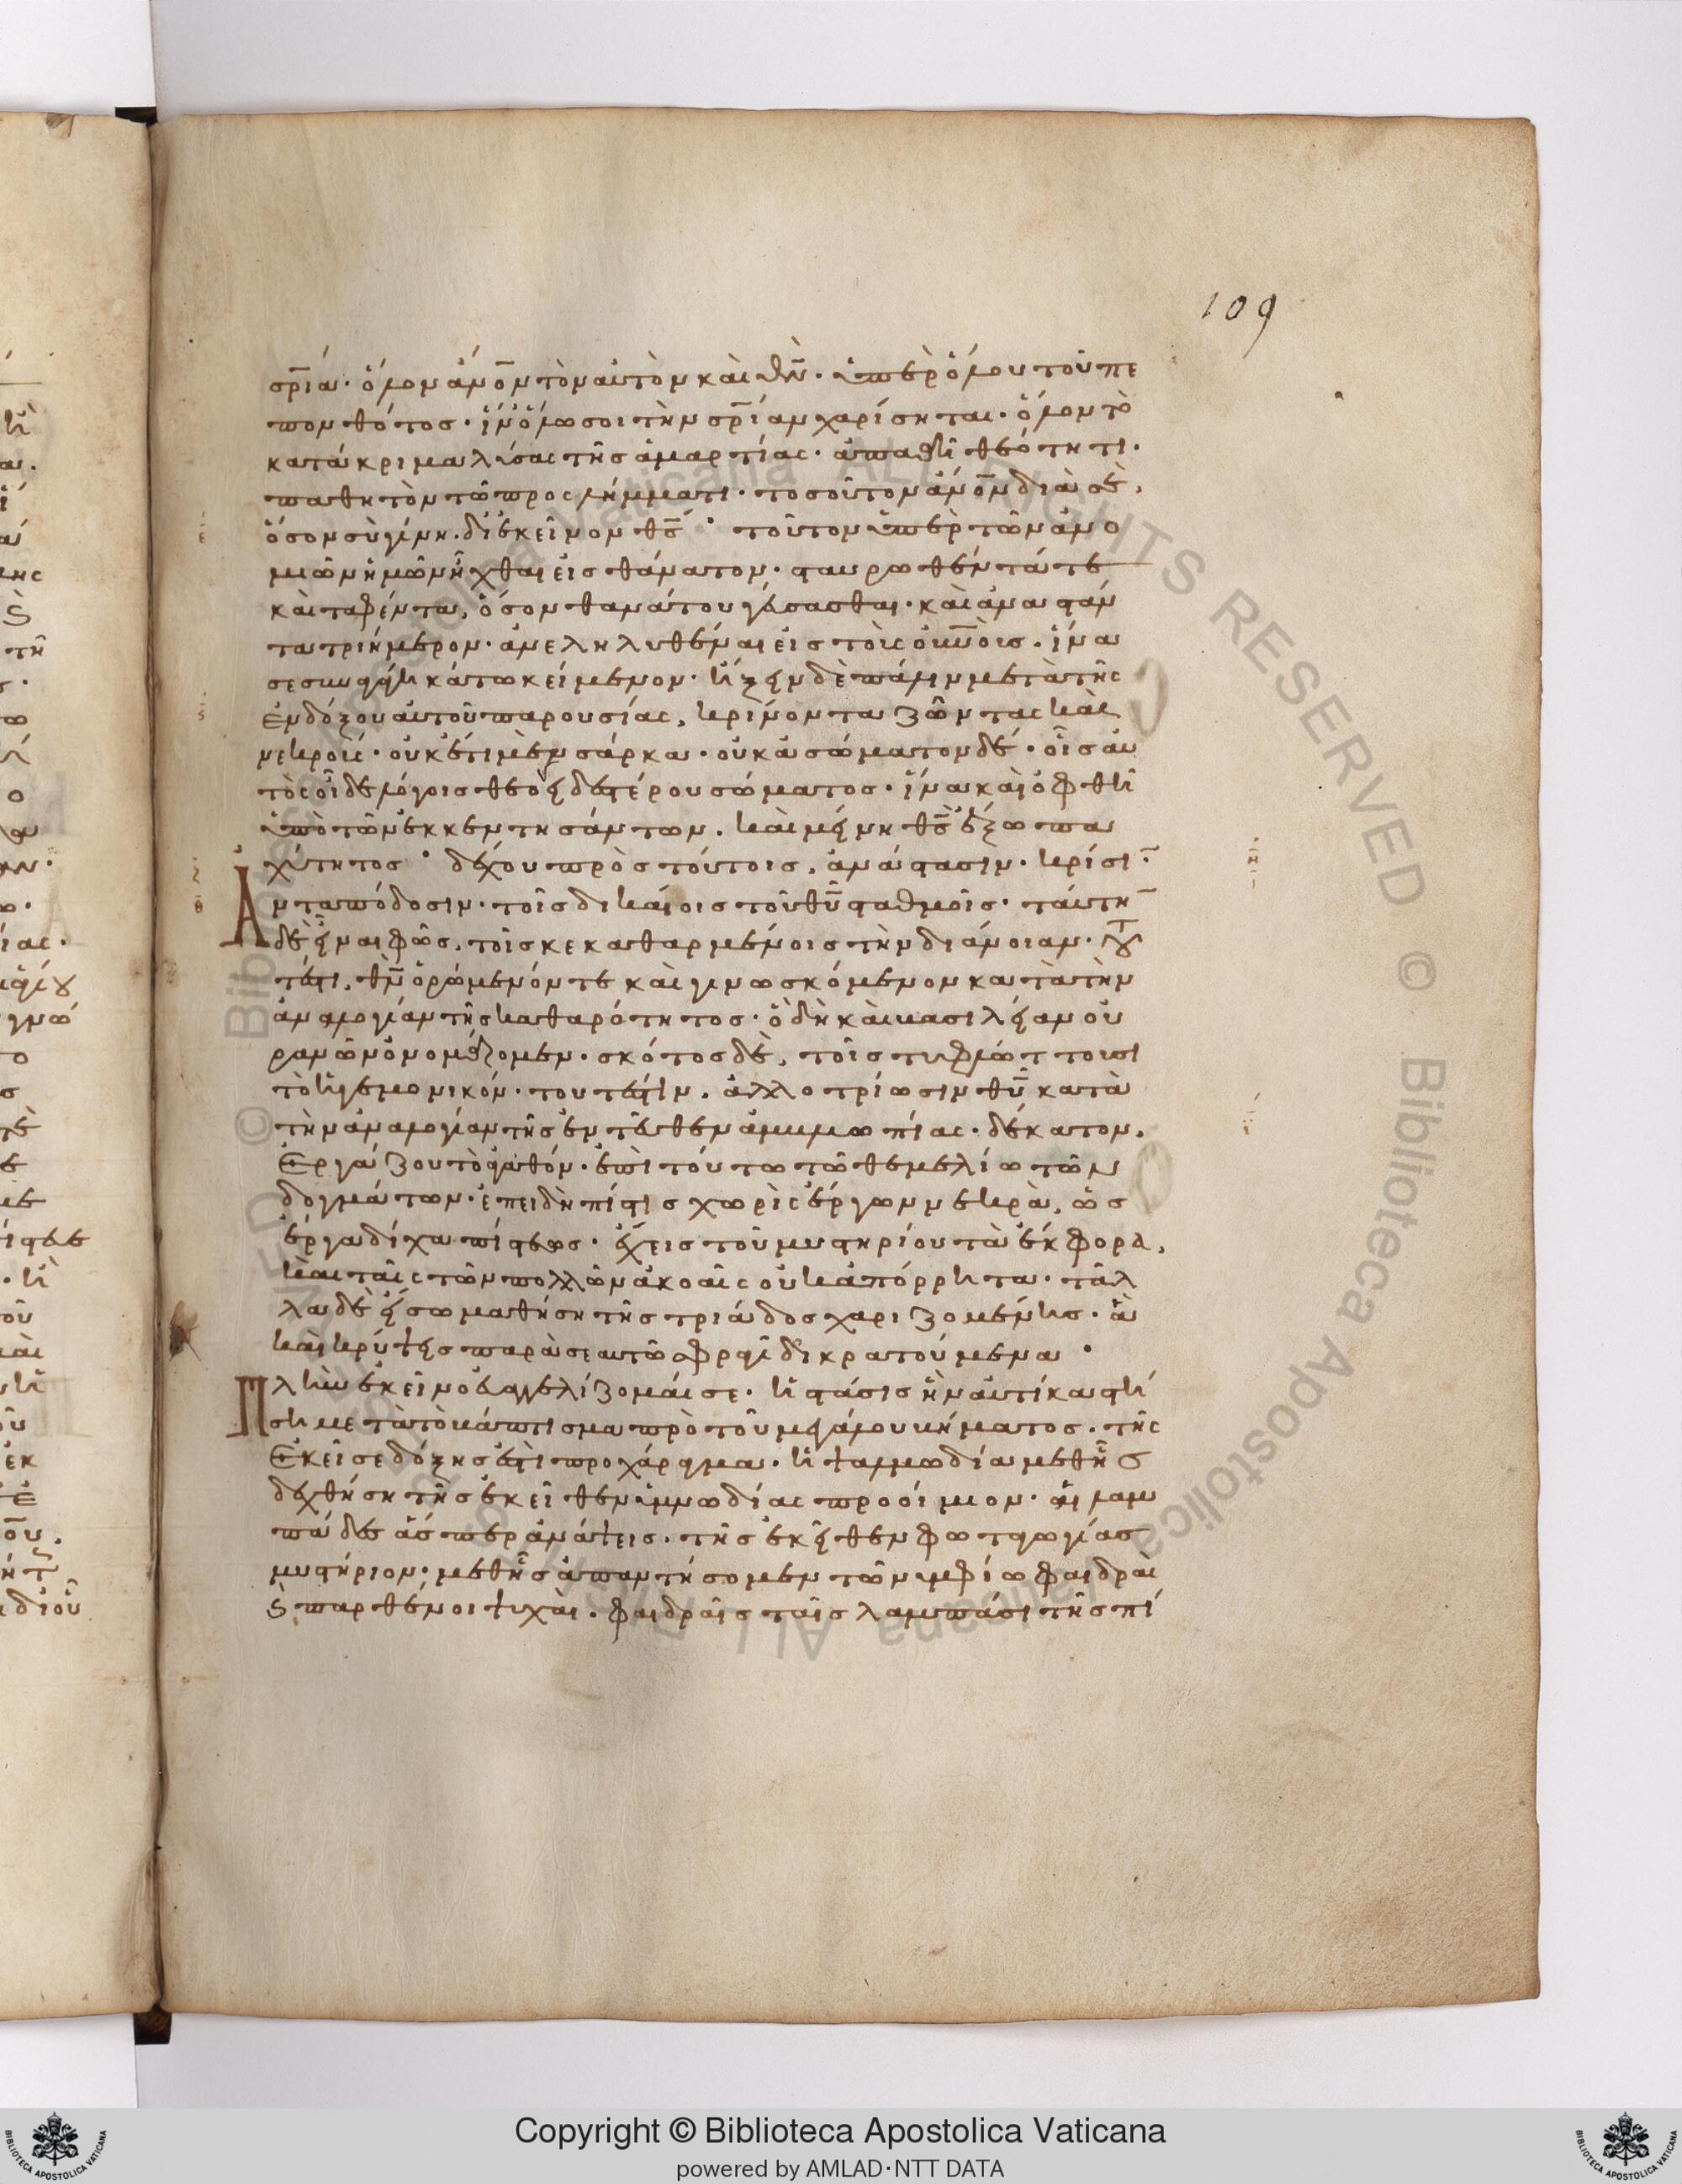 109
σρίαν· ὅλον ἄνον τὸν αὐτὸν καὶ θν· ὑπὲρ ὅλου τοῦ πε
πονθότος· ἵν' ὅλω σοι τὴν σρίαν χαρίσηται· ὅλον τὸ
κατάκριμα λύσας τῆς ἁμαρτίας· ἀπαθῆ θεότητι·
παθητὸν τῶ προσλήμματι· τοσοῦτον ἄνον διὰ σὲ,
ὅσον σὺ γίνη δι' ἐκεῖνον θς· τοῦτον ὑπὲρ τῶν ἀνο
μιῶν ἡμῶν ἦχθαι εἰς θάνατον· σταυρωθέντά τε
καὶ ταφέντα, ὅσον θανάτου γεύσασθαι· καὶ ἀναστάν
τα τριήμερον· ἀνεληλυθέναι εἰς τοὺς οὐνοὺς. ἵνα
σε συναγάγη κάτω κείμενον· ἥξειν δὲ πάλιν μετὰ τῆς
ἐνδόξου αὐτοῦ παρουσίας, κρίνοντα ζῶντας καὶ
νεκρούς· οὐκέτι μὲν σάρκα· οὐκ ἀσώματον δέ· οἷς αὐ
τὸς οἶδε λόγοις θεοειδεστέρου σώματος· ἵνα καὶ ὀφθῆ
ὑπὸ τῶν ἐκκεντησάντων. καὶ μείνη θς ἔξω πα
χύτητος· δέχου πρὸς τούτοις, ἀνάστασιν· κρίσι
ἀνταπόδοσιν· τοῖς δικαίοις τοῦ θυ σταθμοῖς· ταύτη
δὲ εἶναι φῶς, τοῖς κεκαθαρμένοις τὴν διάνοιαν· τουτ
τέστι, θν ὁρώμενόν τε καὶ γινωσκόμενον κατὰ τὴν
ἀναλογίαν τῆς καθαρότητος· ὃ δὴ καὶ βασιλείαν οὐ
ρανῶν ὀνομάζομεν· σκότος δὲ, τοῖς τυφλώττουσι
τὸ ἡγεμονικόν· τουτέστιν. ἀλλοτρίωσιν θυ κατὰ
τὴν ἀναλογίαν τῆς ἐντεῦθεν ἀμβλυωπίας· δέκατον,
Ἐργάζου τὸ ἀγαθόν· ἐπὶ τούτω τῶ θεμελίω τῶν
δογμάτων· ἐπειδὴ πίστις χωρὶς ἔργων νεκρὰ, ὡς
ἔργα δίχα πίστεως· ἔχεις τοῦ μυστηρίου τὰ ἔκφορα,
καὶ ταῖς τῶν πολλῶν ἀκοαῖς οὐκ ἀπόρρητα· τἄλ
λα δὲ εἴσω μαθήση τῆς τριάδος χαριζομένης· ἃ
καὶ κρύψεις παρὰ σεαυτῶ σφραγῖδι κρατούμενα·
Πλὴν ἐκεῖνο εὐαγγελίζομαί σε· ἡ στάσις ἣν αὐτίκα στή
ση μετὰ τὸ βάπτισμα πρὸ τοῦ μεγάλου βήματος. τῆς
Ἐκεῖσε δόξης ἐστὶ προχάραγμα· ἡ ψαλμωδία μεθ' ἧς
δεχθήση τῆς ἐκεῖθεν ὑμνωδίας προοίμιον· αἱ λαμ
πάδες ἅσπερ ἀνάψεις. τῆς ἐκεῖθεν φωταγωγίας
μυστήριον· μεθ' ἧς ἀπαντήσομεν τῶ νυμφίω φαιδραὶ
ϗ παρθένοι ψυχαὶ. φαιδραῖς ταῖς λαμπάσι τῆς πί
Copyright © Biblioteca Apostolica Vaticana
powered by AMLAD·NTT DATA